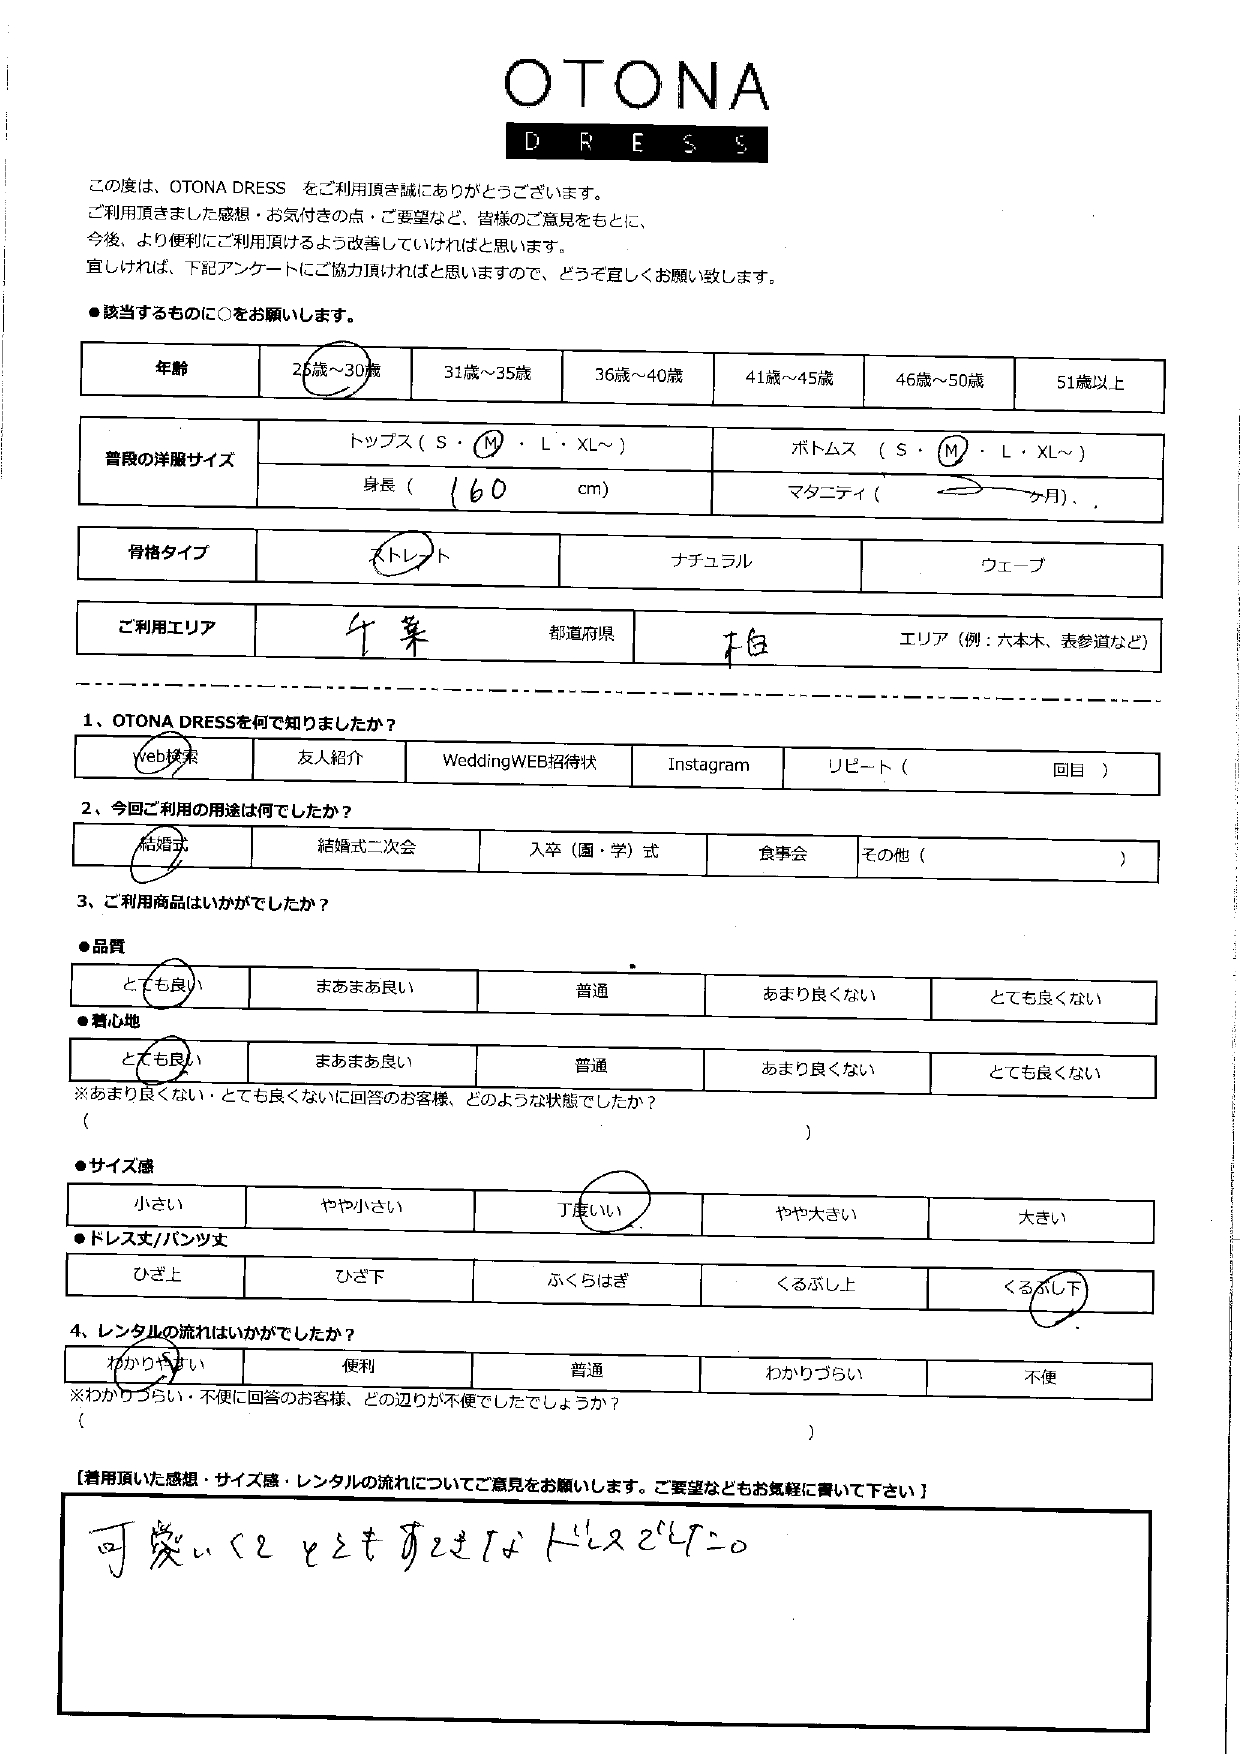 OTONA
DRESS
この度は、OTONA DRESS　をご利用頂き誠にありがとうございます。
ご利用頂きました感想・お気付きの点・ご要望など、皆様のご意見をもとに、
今後、より便利にご利用頂けるよう改善していければと思います。
宜しければ、下記アンケートにご協力頂ければと思いますので、どうぞ宜しくお願い致します。
●該当するものに○をお願いします。
年齢 25歳～30歳 31歳～35歳 36歳～40歳 41歳～45歳 46歳～50歳 51歳以上
普段の洋服サイズ トップス ( S ・ M ・ L ・ XL～ ) ボトムス ( S ・ M ・ L ・ XL～ )
身長 ( 160 cm) マタニティ ( ヶ月)
骨格タイプ ストレート ナチュラル ウェーブ
ご利用エリア 千葉 都道府県 柏 エリア（例：六本木、表参道など）
1、OTONA DRESSを何で知りましたか？
web検索 友人紹介 WeddingWEB招待状 Instagram リピート ( 回目 )
2、今回ご利用の用途は何でしたか？
結婚式 結婚式二次会 入卒（園・学）式 食事会 その他 ( )
3、ご利用商品はいかがでしたか？
●品質
とても良い まあまあ良い 普通 あまり良くない とても良くない
●着心地
とても良い まあまあ良い 普通 あまり良くない とても良くない
※あまり良くない・とても良くないに回答のお客様、どのような状態でしたか？
( )
●サイズ感
小さい やや小さい 丁度いい やや大きい 大きい
●ドレス丈/パンツ丈
ひざ上 ひざ下 ふくらはぎ くるぶし上 くるぶし下
4、レンタルの流れはいかがでしたか？
わかりやすい 便利 普通 わかりづらい 不便
※わかりづらい・不便に回答のお客様、どの辺りが不便でしたでしょうか？
( )
【着用頂いた感想・サイズ感・レンタルの流れについてご意見をお願いします。ご要望などもお気軽に書いて下さい】
可愛いくてとてもすてきなドレスでした。